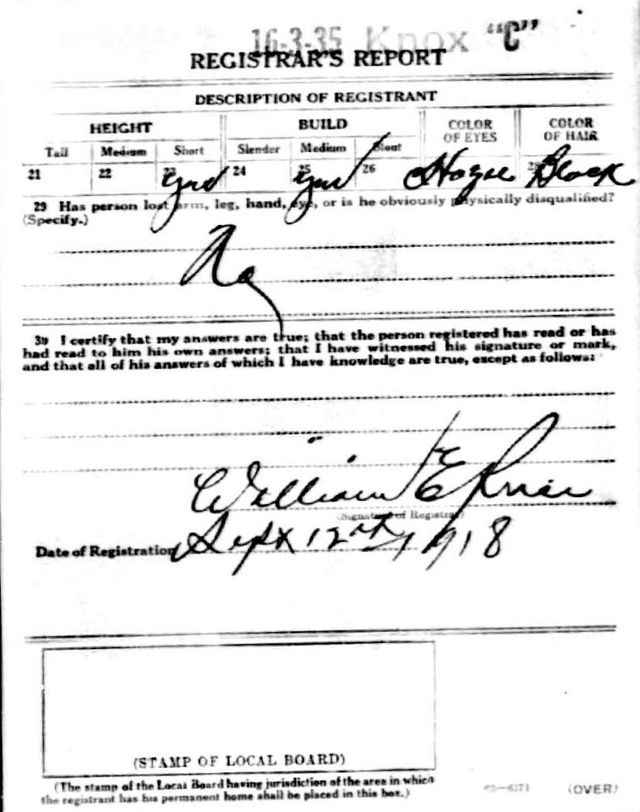 16-3-35 Knox "C"
REGISTRAR'S REPORT
DESCRIPTION OF REGISTRANT
HEIGHT BUILD COLOR OF EYES COLOR OF HAIR
Tall Medium Short Slender Medium Stout
21 22 23 yes 24 25 yes 26 Hazel 28 Black
29 Has person lost arm, leg, hand, eye, or is he obviously physically disqualified?
(Specify.)
No
30 I certify that my answers are true; that the person registered has read or has
had read to him his own answers; that I have witnessed his signature or mark,
and that all of his answers of which I have knowledge are true, except as follows:
William E
(Signature of Registrar)
Date of Registration Sept 12th, 1918
(STAMP OF LOCAL BOARD)
(The stamp of the Local Board having jurisdiction of the area in which
the registrant has his permanent home shall be placed in this box.)
(OVER)